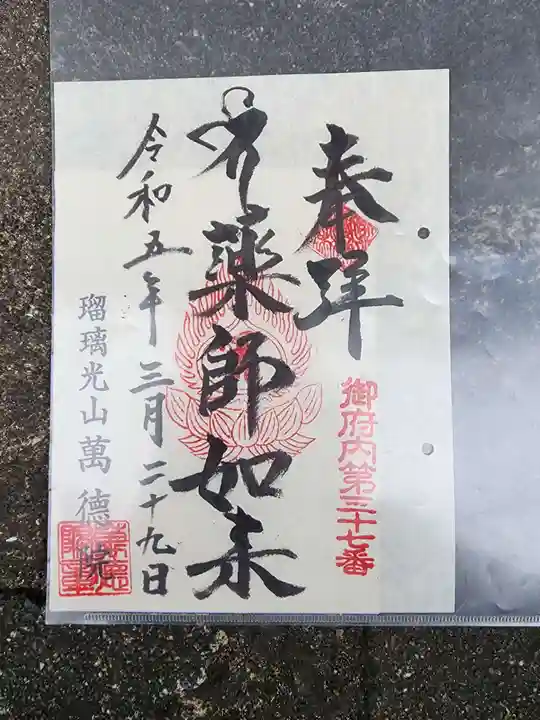 奉拝
御府内第三十七番
薬師如来
令和五年三月二十九日
瑠璃光山萬德院